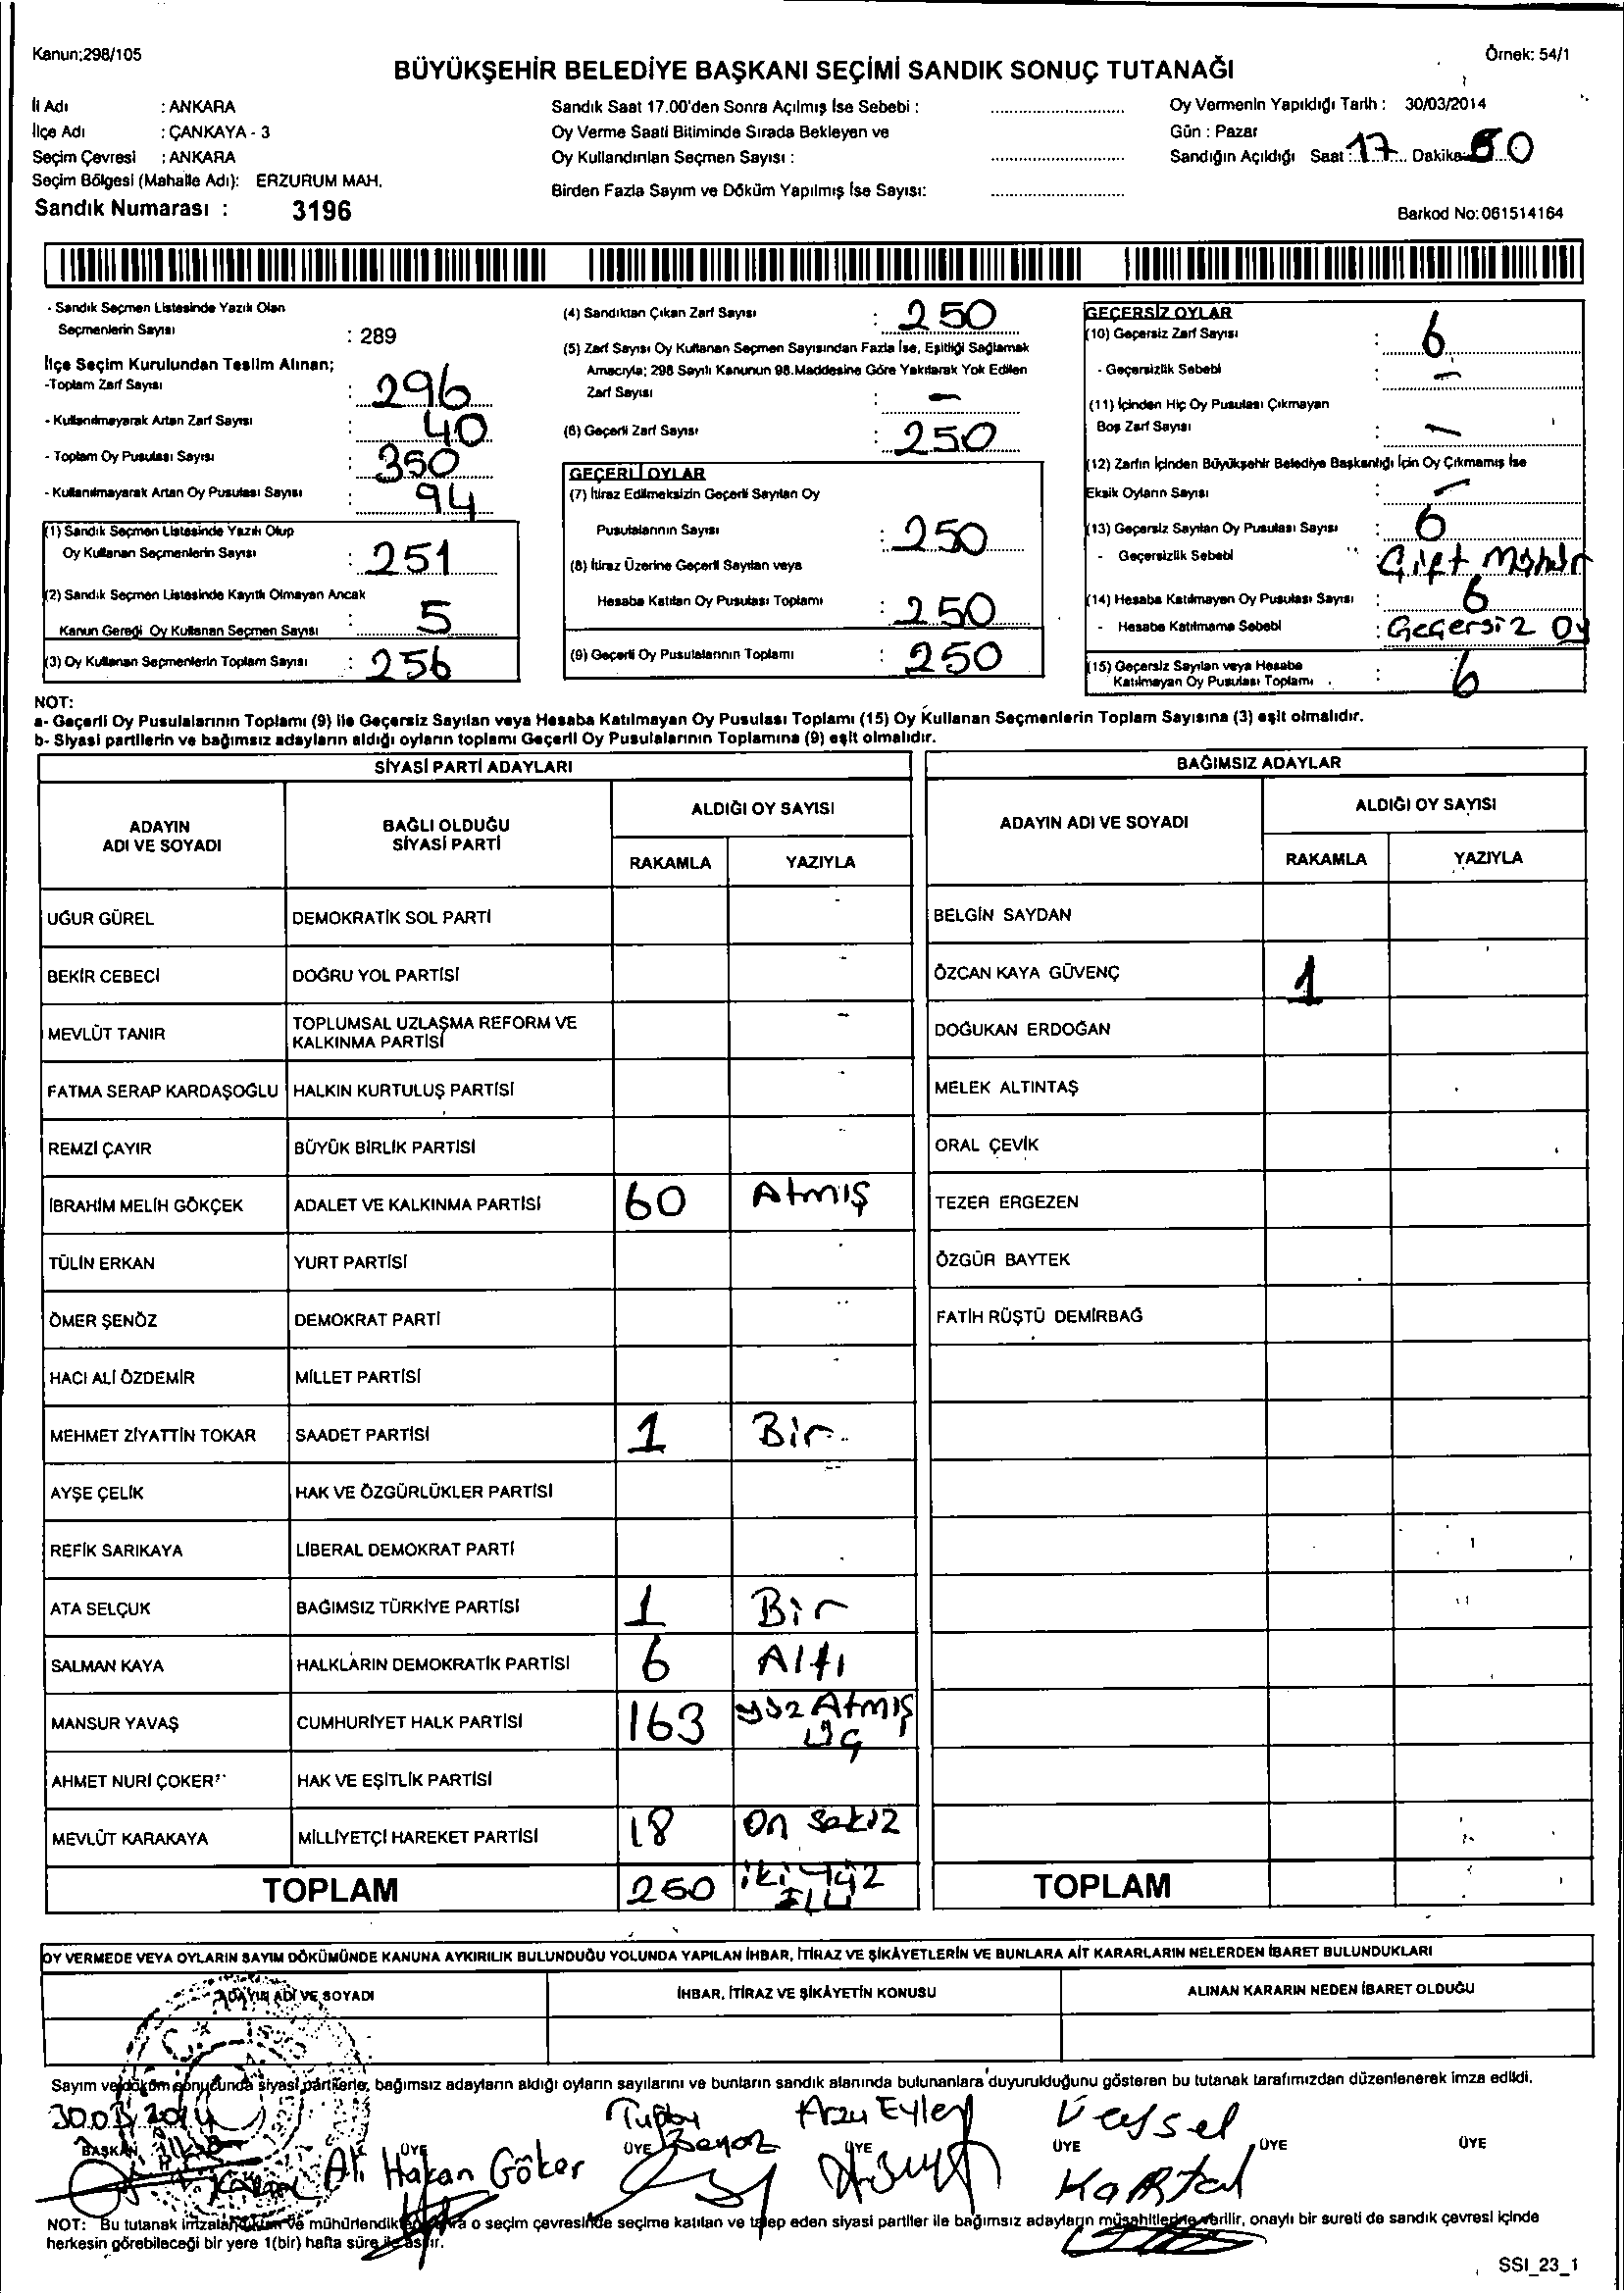 Kanun;298/105
Örnek: 54/1
BÜYÜKŞEHİR BELEDİYE BAŞKANI SEÇİMİ SANDIK SONUÇ TUTANAĞI
İl Adı : ANKARA
İlçe Adı : ÇANKAYA - 3
Seçim Çevresi : ANKARA
Seçim Bölgesi (Mahalle Adı): ERZURUM MAH.
Sandık Numarası : 3196
Sandık Saat 17.00'den Sonra Açılmış İse Sebebi :
Oy Verme Saati Bitiminde Sırada Bekleyen ve
Oy Kullandırılan Seçmen Sayısı :
Birden Fazla Sayım ve Döküm Yapılmış İse Sayısı:
Oy Vermenin Yapıldığı Tarih : 30/03/2014
Gün : Pazar
Sandığın Açıldığı Saat : 17 Dakika: 50
Barkod No:061514164
- Sandık Seçmen Listesinde Yazılı Olan
Seçmenlerin Sayısı : 289
İlçe Seçim Kurulundan Teslim Alınan;
-Toplam Zarf Sayısı : 296
- Kullanılmayarak Artan Zarf Sayısı : 40
- Toplam Oy Pusulası Sayısı : 350
- Kullanılmayarak Artan Oy Pusulası Sayısı : 94
(1) Sandık Seçmen Listesinde Yazılı Olup
Oy Kullanan Seçmenlerin Sayısı : 251
(2) Sandık Seçmen Listesinde Kayıtlı Olmayan Ancak
Kanun Gereği Oy Kullanan Seçmen Sayısı : 5
(3) Oy Kullanan Seçmenlerin Toplam Sayısı : 256
(4) Sandıktan Çıkan Zarf Sayısı : 250
(5) Zarf Sayısı Oy Kullanan Seçmen Sayısından Fazla İse, Eşitliği Sağlamak
Amacıyla; 298 Sayılı Kanunun 98.Maddesine Göre Yakılarak Yok Edilen
Zarf Sayısı : -
(6) Geçerli Zarf Sayısı : 250
GEÇERLİ OYLAR
(7) İtiraz Edilmeksizin Geçerli Sayılan Oy
Pusulalarının Sayısı : 250
(8) İtiraz Üzerine Geçerli Sayılan veya
Hesaba Katılan Oy Pusulası Toplamı : 250
(9) Geçerli Oy Pusulalarının Toplamı : 250
GEÇERSİZ OYLAR
(10) Geçersiz Zarf Sayısı : 6
- Geçersizlik Sebebi : -
(11) İçinden Hiç Oy Pusulası Çıkmayan
Boş Zarf Sayısı : -
(12) Zarfın İçinden Büyükşehir Belediye Başkanlığı İçin Oy Çıkmamış İse
Eksik Oyların Sayısı : -
(13) Geçersiz Sayılan Oy Pusulası Sayısı : 6
- Geçersizlik Sebebi Çift Mühür
(14) Hesaba Katılmayan Oy Pusulası Sayısı : 6
- Hesaba Katılmama Sebebi : Geçersiz Oy
(15) Geçersiz Sayılan veya Hesaba
Katılmayan Oy Pusulası Toplamı : 6
NOT:
a- Geçerli Oy Pusulalarının Toplamı (9) ile Geçersiz Sayılan veya Hesaba Katılmayan Oy Pusulası Toplamı (15) Oy Kullanan Seçmenlerin Toplam Sayısına (3) eşit olmalıdır.
b- Siyasi partilerin ve bağımsız adayların aldığı oyların toplamı Geçerli Oy Pusulalarının Toplamına (9) eşit olmalıdır.
SİYASİ PARTİ ADAYLARI
ADAYIN ADI VE SOYADI
BAĞLI OLDUĞU SİYASİ PARTİ
ALDIĞI OY SAYISI
RAKAMLA YAZIYLA
UĞUR GÜREL DEMOKRATİK SOL PARTİ
BEKİR CEBECİ DOĞRU YOL PARTİSİ
MEVLÜT TANIR TOPLUMSAL UZLAŞMA REFORM VE KALKINMA PARTİSİ
FATMA SERAP KARDAŞOĞLU HALKIN KURTULUŞ PARTİSİ
REMZİ ÇAYIR BÜYÜK BİRLİK PARTİSİ
İBRAHİM MELİH GÖKÇEK ADALET VE KALKINMA PARTİSİ 60 Atmış
TÜLİN ERKAN YURT PARTİSİ
ÖMER ŞENÖZ DEMOKRAT PARTİ
HACI ALİ ÖZDEMİR MİLLET PARTİSİ
MEHMET ZİYATTİN TOKAR SAADET PARTİSİ 1 Bir
AYŞE ÇELİK HAK VE ÖZGÜRLÜKLER PARTİSİ
REFİK SARIKAYA LİBERAL DEMOKRAT PARTİ
ATA SELÇUK BAĞIMSIZ TÜRKİYE PARTİSİ 1 Bir
SALMAN KAYA HALKLARIN DEMOKRATİK PARTİSİ 6 Altı
MANSUR YAVAŞ CUMHURİYET HALK PARTİSİ 163 yüz Atmış üç
AHMET NURİ ÇOKER HAK VE EŞİTLİK PARTİSİ
MEVLÜT KARAKAYA MİLLİYETÇİ HAREKET PARTİSİ 18 On sekiz
TOPLAM 250 iki yüz
BAĞIMSIZ ADAYLAR
ADAYIN ADI VE SOYADI
ALDIĞI OY SAYISI
RAKAMLA YAZIYLA
BELGİN SAYDAN
ÖZCAN KAYA GÜVENÇ 1
DOĞUKAN ERDOĞAN
MELEK ALTINTAŞ
ORAL ÇEVİK
TEZER ERGEZEN
ÖZGÜR BAYTEK
FATİH RÜŞTÜ DEMİRBAĞ
TOPLAM
OY VERMEDE VEYA OYLARIN SAYIM DÖKÜMÜNDE KANUNA AYKIRILIK BULUNDUĞU YOLUNDA YAPILAN İHBAR, İTİRAZ VE ŞİKÂYETLERİN VE BUNLARA AİT KARARLARIN NELERDEN İBARET BULUNDUKLARI
ADAYIN ADI VE SOYADI
İHBAR, İTİRAZ VE ŞİKÂYETİN KONUSU
ALINAN KARARIN NEDEN İBARET OLDUĞU
Sayım ve döküm sonucunda siyasi partilerle, bağımsız adayların aldığı oyların sayılarını ve bunların sandık alanında bulunanlara duyurulduğunu gösteren bu tutanak tarafımızdan düzenlenerek imza edildi.
30.03.2014
BAŞKAN ÜYE ÜYE ÜYE ÜYE ÜYE ÜYE
Ali Hakan Göker
Arzu
Veysel
Kartal
NOT: Bu tutanak imzalandıktan ve mühürlendikten sonra o seçim çevresinde seçime katılan ve talep eden siyasi partiler ile bağımsız adayların müşahitlerine verilir, onaylı bir sureti de sandık çevresi içinde
herkesin görebileceği bir yere 1(bir) hafta süre ile asılır.
SSI_23_1